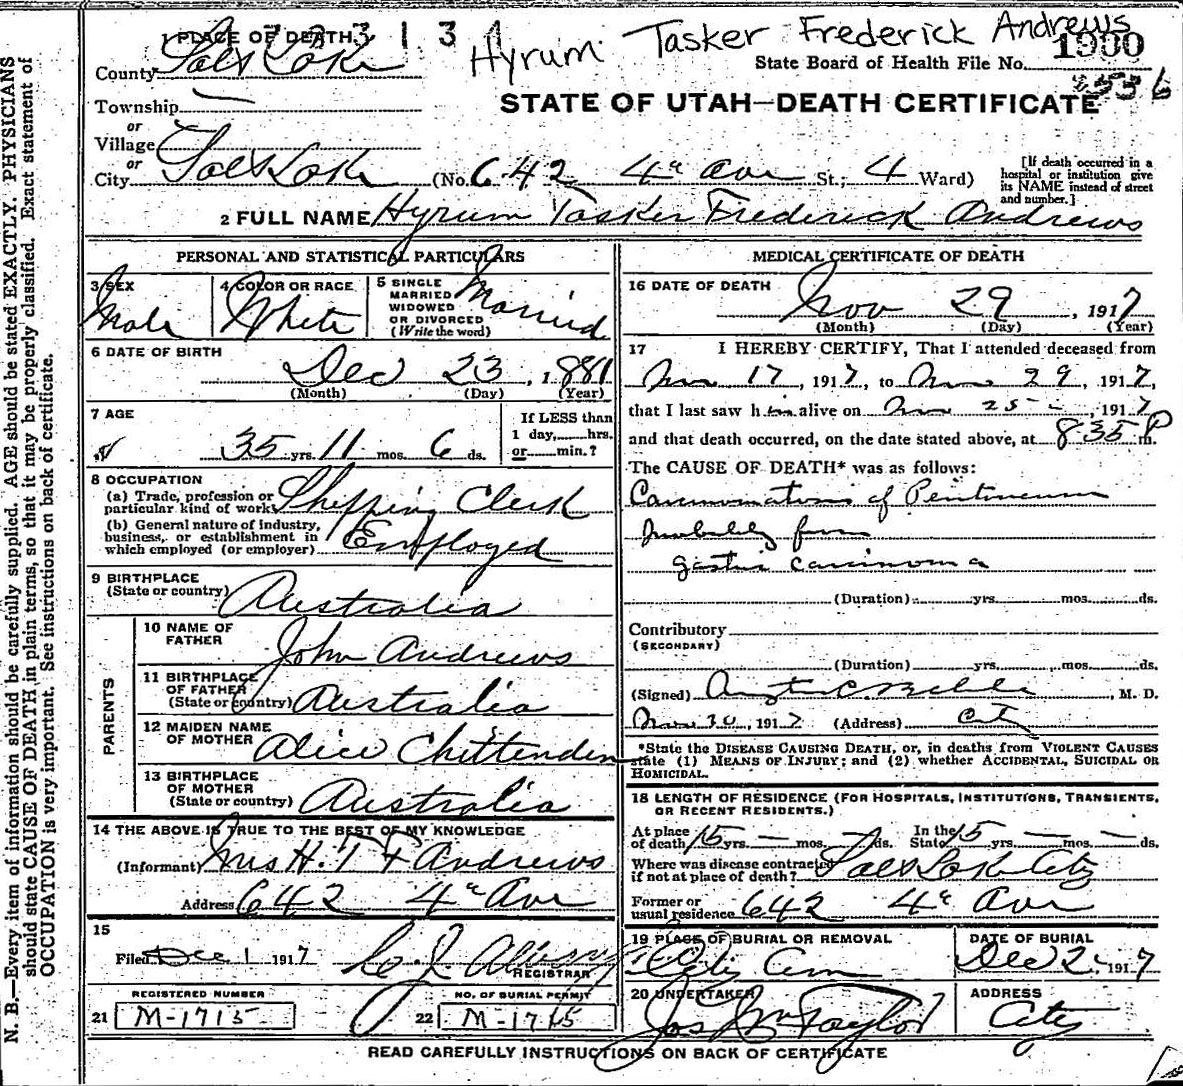 N. B.—Every item of information should be carefully supplied. AGE should be stated EXACTLY. PHYSICIANS
should state CAUSE OF DEATH in plain terms, so that it may be properly classified. Exact statement of
OCCUPATION is very important. See instructions on back of certificate.
Hyrum Tasker Frederick Andrews
1 PLACE OF DEATH
1900
County Salt Lake
State Board of Health File No.
Township
STATE OF UTAH—DEATH CERTIFICATE
or
Village
or
City Salt Lake (No. 642 4th Ave St.; 4 Ward)
[If death occurred in a
hospital or institution give
its NAME instead of street
and number.]
2 FULL NAME Hyrum Tasker Frederick Andrews
PERSONAL AND STATISTICAL PARTICULARS
3 SEX
Male
4 COLOR OR RACE
White
5 SINGLE
MARRIED
WIDOWED
OR DIVORCED
(Write the word)
Married
6 DATE OF BIRTH
Dec 23, 1881
(Month) (Day) (Year)
7 AGE
35 yrs. 11 mos. 6 ds.
If LESS than
1 day, hrs.
or min.?
8 OCCUPATION
(a) Trade, profession or
particular kind of work Shipping Clerk
(b) General nature of industry,
business, or establishment in
which employed (or employer) Employed
9 BIRTHPLACE
(State or country) Australia
PARENTS
10 NAME OF
FATHER John Andrews
11 BIRTHPLACE
OF FATHER
(State or country) Australia
12 MAIDEN NAME
OF MOTHER Alice Chittenden
13 BIRTHPLACE
OF MOTHER
(State or country) Australia
14 THE ABOVE IS TRUE TO THE BEST OF MY KNOWLEDGE
(Informant) Mrs H. T F Andrews
Address 642 4th Ave
15
Filed Dec 1 1917
REGISTRAR
REGISTERED NUMBER
21 M-1715
NO. OF BURIAL PERMIT
22 M-1715
MEDICAL CERTIFICATE OF DEATH
16 DATE OF DEATH
Nov 29, 1917
(Month) (Day) (Year)
17 I HEREBY CERTIFY, That I attended deceased from
Nov 17, 1917, to Nov 29, 1917,
that I last saw him alive on Nov 25, 1917
and that death occurred, on the date stated above, at 835 P m.
The CAUSE OF DEATH* was as follows:
Carcinomatosis of Peritoneum
Probably from
gastric carcinoma
(Duration) yrs. mos. ds.
Contributory
(SECONDARY)
(Duration) yrs. mos. ds.
(Signed) M. D.
Nov 30, 1917 (Address) City
*State the DISEASE CAUSING DEATH, or, in deaths from VIOLENT CAUSES
state (1) MEANS OF INJURY; and (2) whether ACCIDENTAL, SUICIDAL OR
HOMICIDAL.
18 LENGTH OF RESIDENCE (FOR HOSPITALS, INSTITUTIONS, TRANSIENTS,
OR RECENT RESIDENTS.)
At place
of death 15 yrs. — mos. ds.
In the
State 15 yrs. — mos. — ds.
Where was disease contracted
if not at place of death? Salt Lake City
Former or
usual residence 642 4th Ave
19 PLACE OF BURIAL OR REMOVAL
City Cem
DATE OF BURIAL
Dec 2, 1917
20 UNDERTAKER
Jos Wm Taylor
ADDRESS
City
READ CAREFULLY INSTRUCTIONS ON BACK OF CERTIFICATE